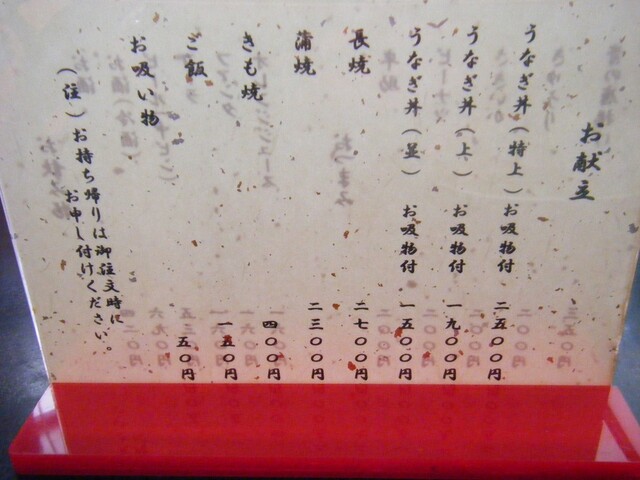 お献立
うなぎ丼（特上） お吸物付 二五〇〇円
うなぎ丼（上） お吸物付 一九〇〇円
うなぎ丼（並） お吸物付 一五〇〇円
長焼 二七〇〇円
蒲焼 二三〇〇円
きも焼 四〇〇円
ご飯 一五〇円
お吸い物 五〇円
（注）お持ち帰りは御注文時に
お申し付けください。